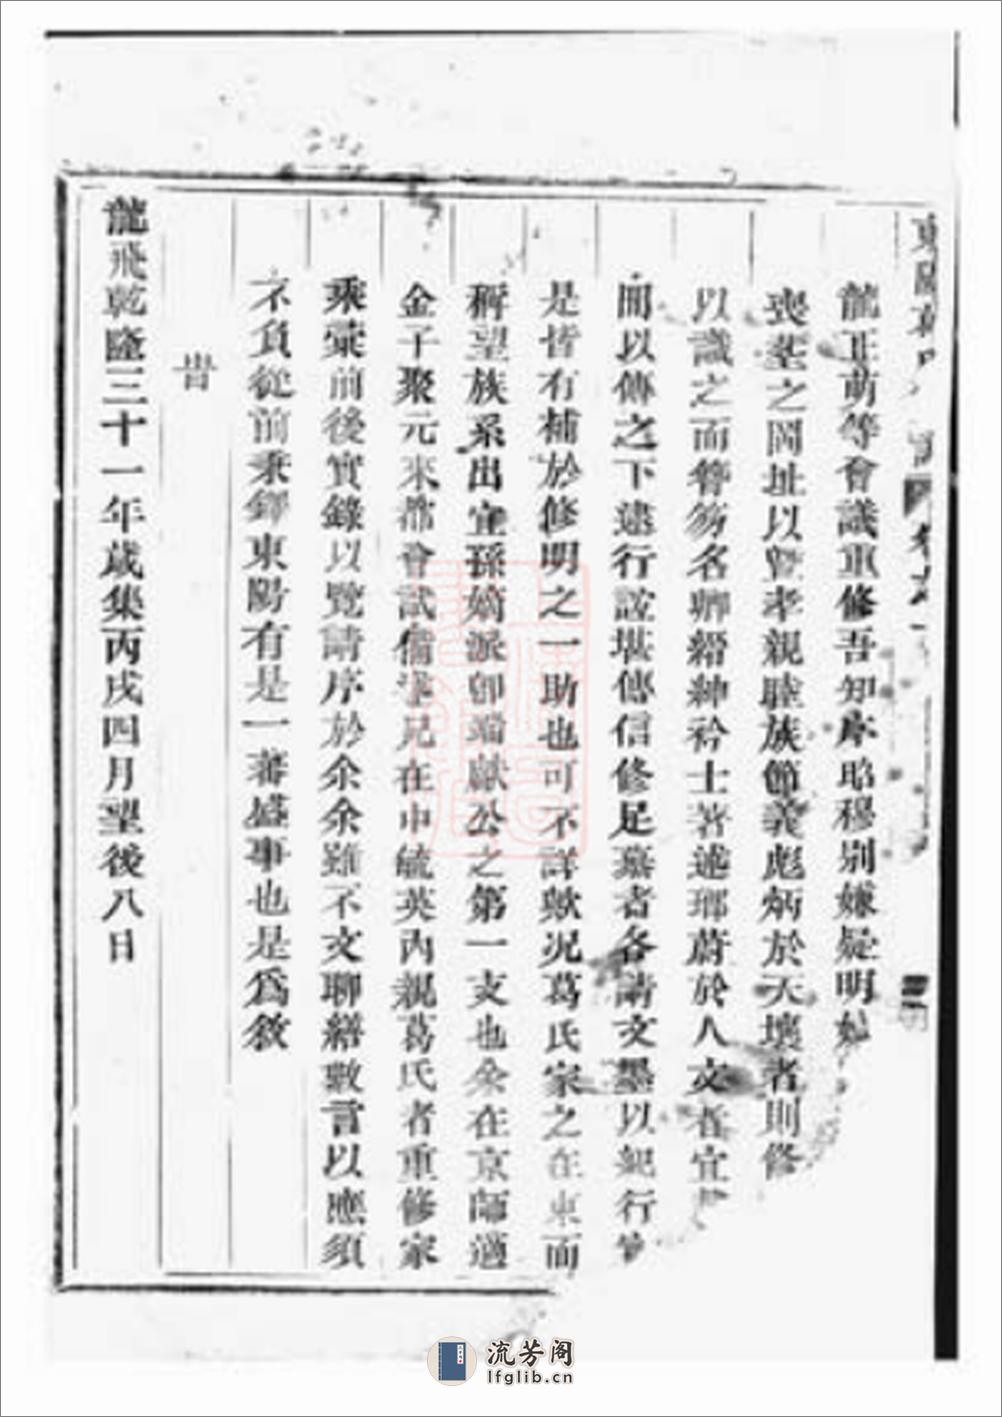 龍正萌等會議重修吾知序昭穆别嫌疑明
喪塟之岡址以曁孝親睦族節義彪炳於天壤者則修
以識之而簪笏名卿縉紳衿士著述瑯蔚於人文者宜
聞以傳之下逮行誼堪傳信修足慕者各請文墨以紀行
是皆有補於修明之一助也可不詳歟况葛氏家之在東而
稱望族系出宜孫嫡派卽端獻公之第一支也余在京師適
金子聚元來都會試備述兄在中毓英內親葛氏者重修家
乘彚前後實錄以覽請序於余余雖不文聊繕數言以應須
不負從前乘鐸東陽有是一蕃盛事也是爲敘
旹
龍飛乾隆三十一年歲集丙戌四月望後八日
流芳阁
lfglib.cn